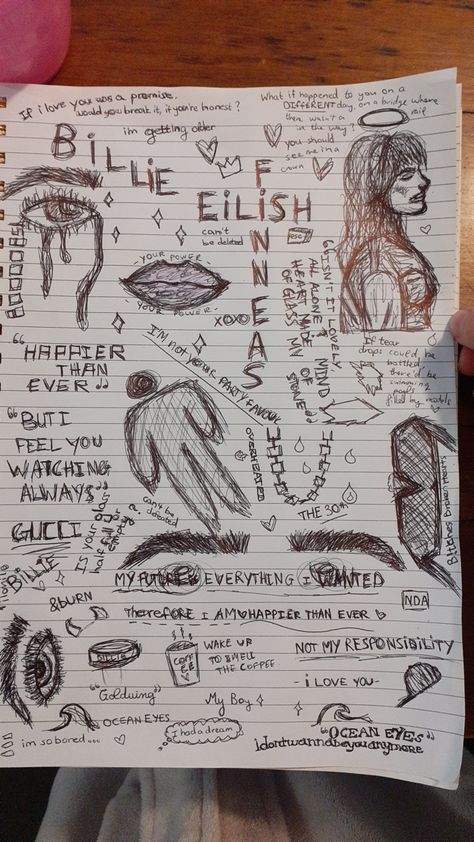 If i love you was a promise.
would you break it, if you're honest?
What if happened to you on a
DIFFERENT day, on a bridge where
there wasn't a rail
in the way?
i'm getting older
you should
see me in a
crown
BiLLiE
EiLiSH
FiNNEAS
can't
be deleted
esc
YOUR POWER
YOUR POWER
XOXO
"ISN'T IT LOVELY
ALL ALONE?
HEART MADE
OF GLASS MY
MIND OF
STONE"
I'M NOT YOUR PARTY FAVOUR
If tear
drops could be
bottled
there'd be
swimming
pools
filled by models
"HAPPIER
THAN
EVER"
"BUT I
FEEL YOU
WATCHING
ALWAYS"
GUCCI
IS your glass
half full or
empty?
can't be
OVERHEATED
THE 30th
Bittches Broken Hearts
BiLLiE
MY FUTURE
EVERYTHING I WANTED
NDA
&BURN
Therefore I AM
HAPPIER THAN EVER
BILLIE
COFFEE
WAKE UP
TO SMELL
THE COFFEE
NOT MY RESPONSIBILITY
- i LOVE YOU -
"Goldwing"
My Boy
OCEAN EYES
I had a dream
"OCEAN EYES"
im so bored...
idontwannabeyouanymore